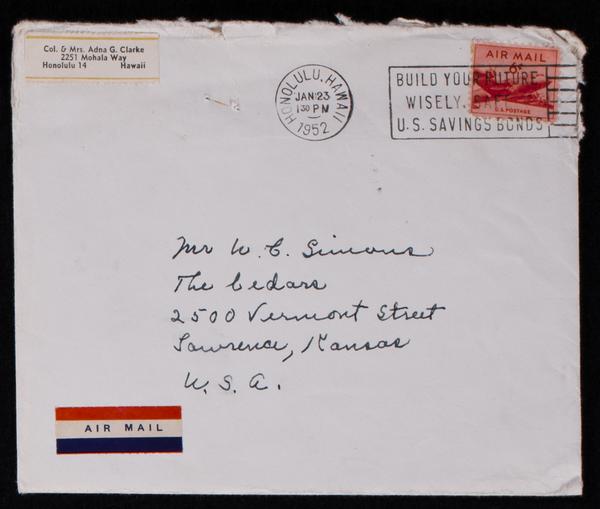 Col. & Mrs. Adna G. Clarke
2251 Mohala Way
Honolulu 14 Hawaii
HONOLULU, HAWAII
JAN 23
1 30 PM
1952
BUILD YOUR FUTURE
WISELY, SAFELY
U.S. SAVINGS BONDS
AIR MAIL
6¢
U.S. POSTAGE
Mr W. C. Simons
The Cedars
2500 Vermont Street
Lawrence, Kansas
U. S. A.
AIR MAIL